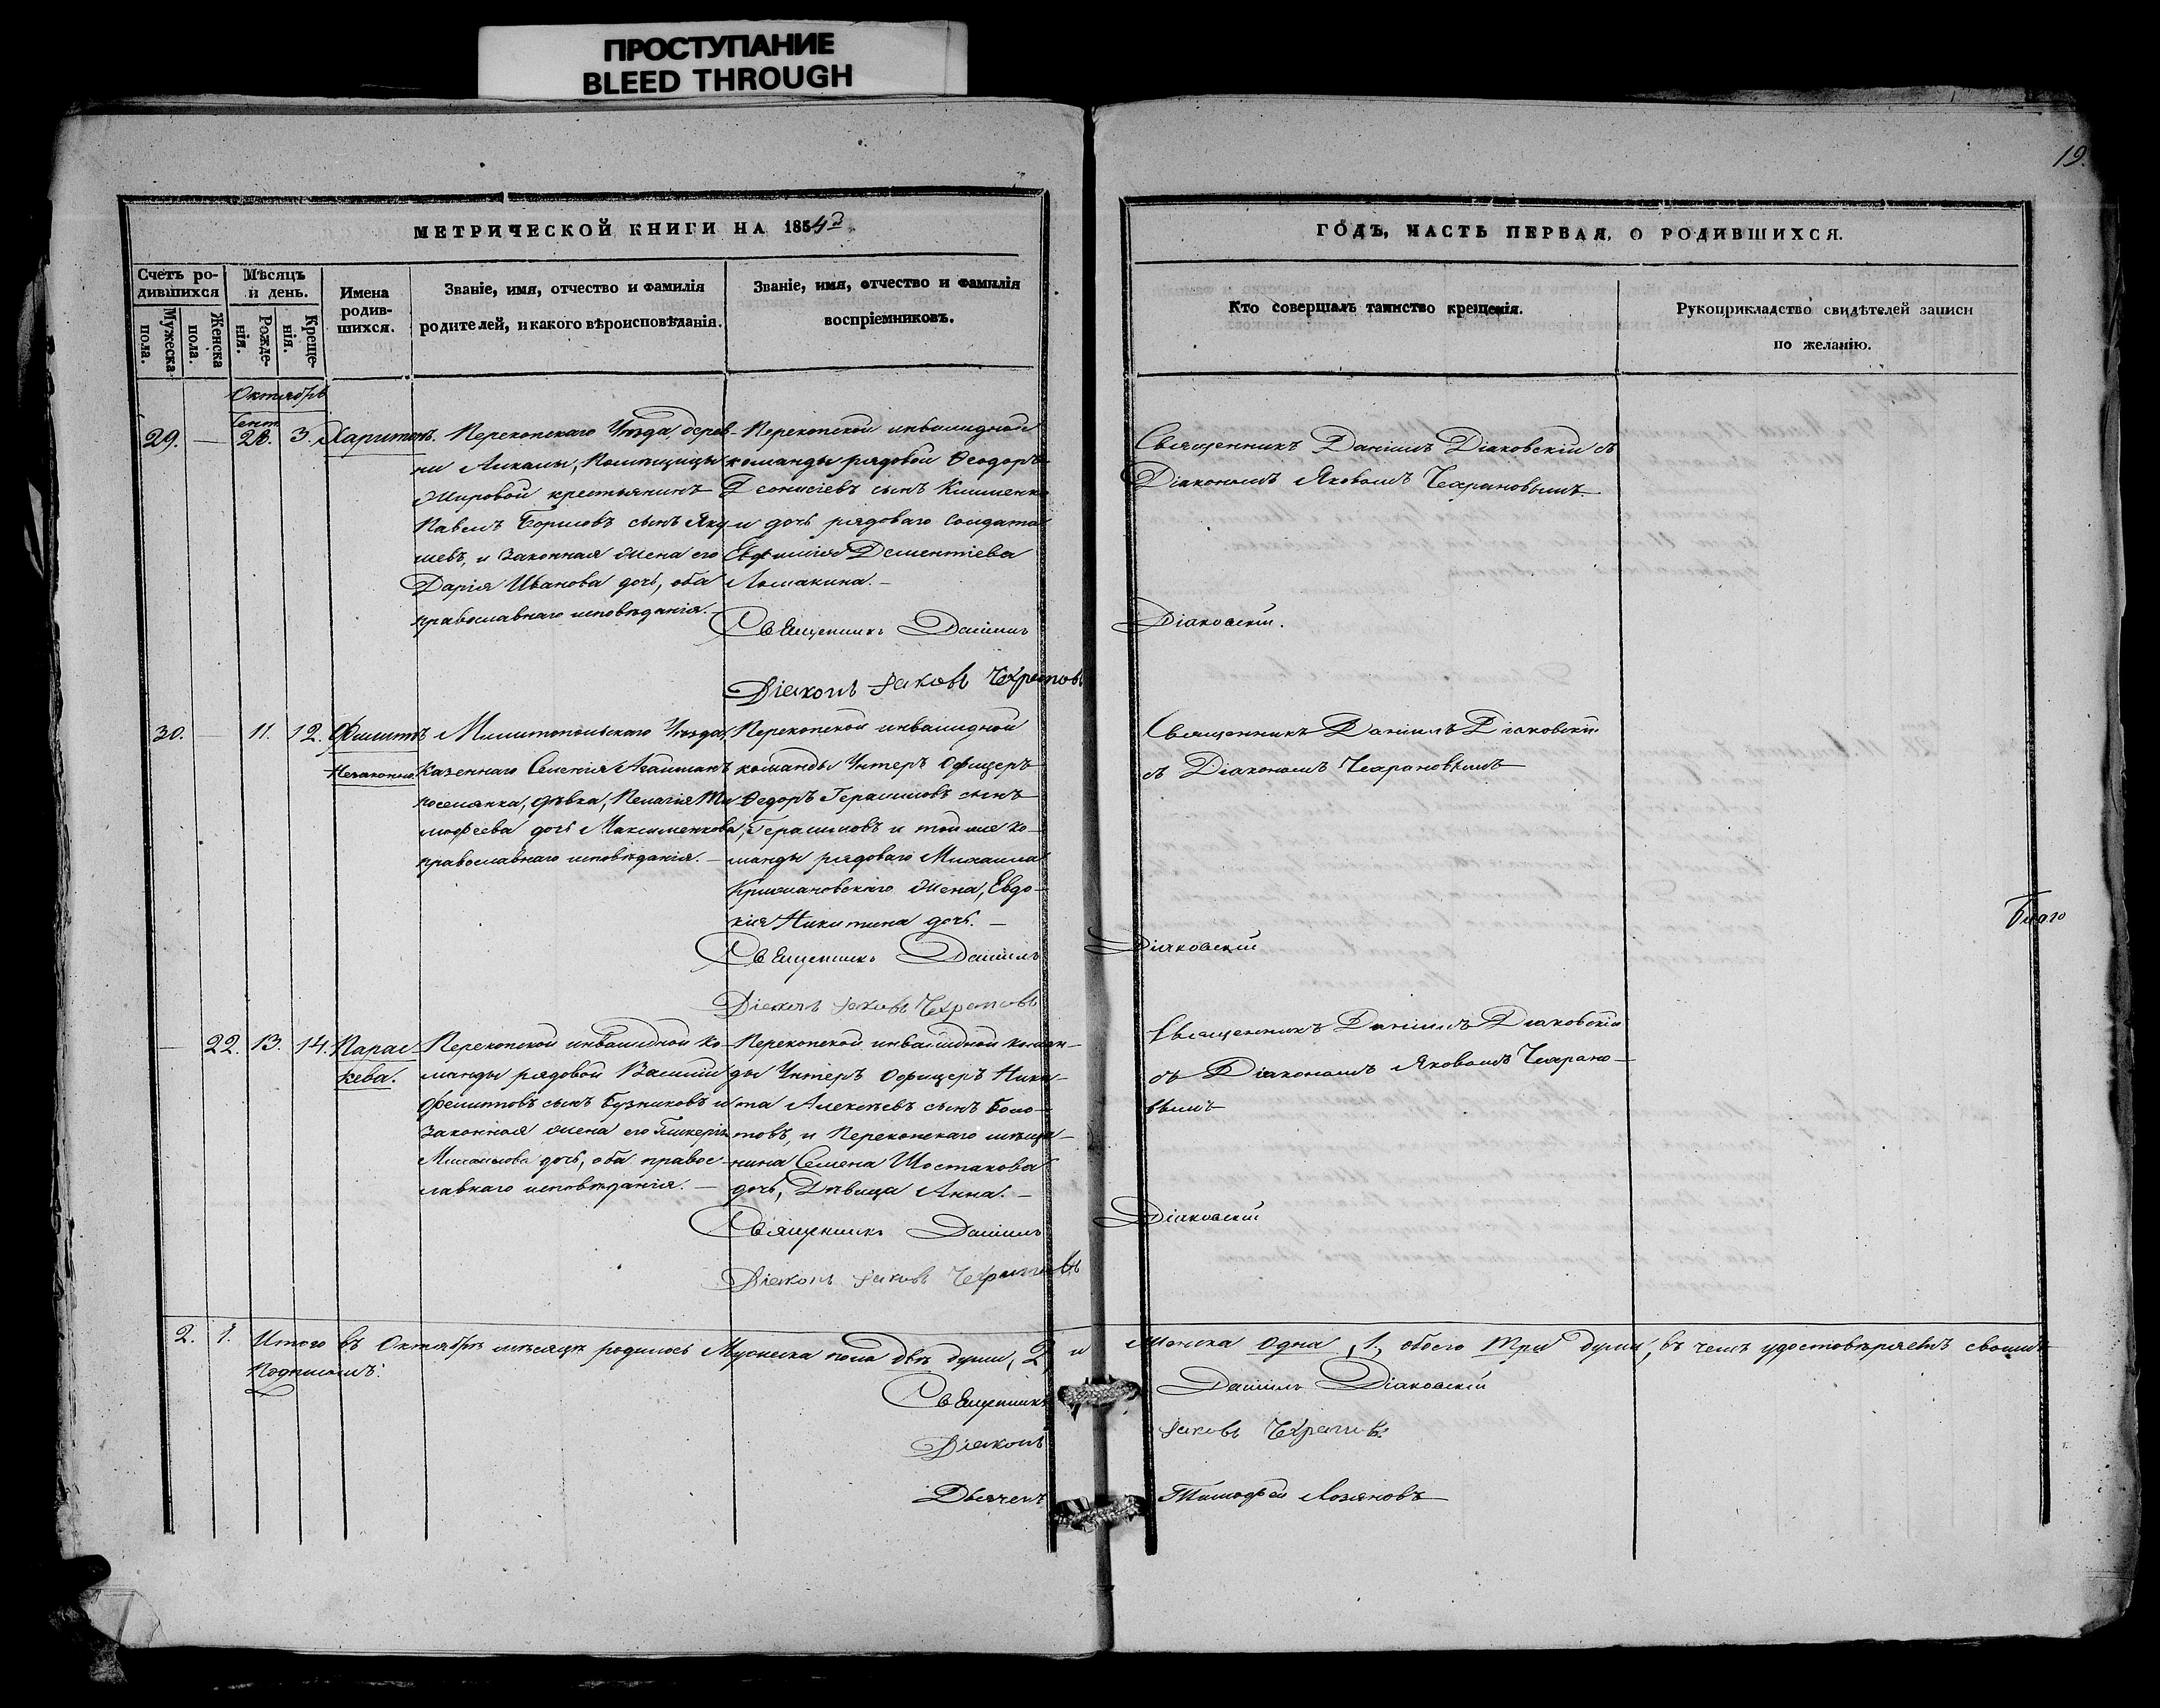 ПРОСТУПАНИЕ
BLEED THROUGH
19.
МЕТРИЧЕСКОЙ КНИГИ НА 1854й
ГОДЪ, ЧАСТЬ ПЕРВАЯ, О РОДИВШИХСЯ.
Счетъ родившихся
Мужеска пола.
Женска пола.
Мѣсяцъ и день.
Рожденія.
Крещенія.
Имена родившихся.
Званіе, имя, отчество и фамилія
родителей, и какого вѣроисповѣданія.
Званіе, имя, отчество и фамилія
воспріемниковъ.
Кто совершалъ таинство крещенія.
Рукоприкладство свидѣтелей записи
по желанію.
Октябрь
29. — Сент. 28. 3. Харитонъ.
Перекопскаго Уѣзда, дерев-
ни Помѣщицы
Жировой крестьянинъ
Павелъ Борисовъ сынъ Яку
шевъ, и законная жена его
Дарія Иванова дочь, оба
православнаго исповѣданія. —
Перекопской инвалидной
команды рядовой Ѳеодоръ
Деонисіевъ сынъ
и дочь рядоваго солдата
Евфимія Дементіева
Ломакина. —
Священникъ Даніилъ Діаковскій.
Діаконъ Іаковъ Чехрановъ
Священникъ Даніилъ Діаковскій съ
Діакономъ Яковомъ Чехрановымъ
30. — 11. 12. Филиппъ
Незаконно.
Мелитопольскаго Уѣзда,
Казеннаго Селенія Агайманъ
поселянка, дѣвка, Пелагія Ти
мофеева дочь Максименкова,
православнаго исповѣданія. —
Перекопской инвалидной
команды Унтеръ Офицеръ
Федоръ Герасимовъ сынъ
Герасимовъ и той же ко-
манды рядоваго Михаила
Крижановскаго жена, Евдо-
кія Никитина дочь. —
Священникъ Даніилъ Діаковскій
Діаконъ Іаковъ Чехрановъ
Священникъ Даніилъ Діаковскій
съ Діакономъ Чехрановымъ
— 22. 13. 14. Парас
кева.
Перекопской инвалидной ко-
манды рядовой Василій
Филиповъ сынъ Бузниковъ и
законная жена его Гликерія
Михайлова дочь, оба правос-
лавнаго исповѣданія. —
Перекопской инвалидной коман-
ды Унтеръ Офицеръ Ники-
та Алексѣевъ сынъ Боло-
товъ, и Перекопскаго мѣща-
нина Семена Шостакова
дочь, Дѣвица Анна. —
Священникъ Даніилъ Діаковскій
Діаконъ Іаковъ Чехрановъ
Священникъ Даніилъ Діаковскій
съ Діакономъ Яковомъ Чехрано-
вымъ
2. 1. Итого въ Октябрѣ мѣсяцѣ родилось Мужеска пола двѣ души, 2, и Женска одна, 1, обоего три души, въ чемъ удостовѣряемъ своимъ
Подписомъ:
Священникъ Даніилъ Діаковскій
Діаконъ Іаковъ Чехрановъ
Дьячекъ Тимофей Лозановъ